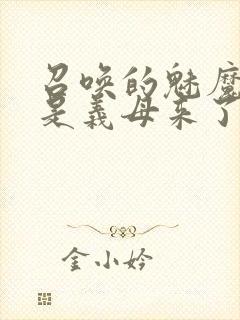 召唤的魅魔
是义母来了
金小妗